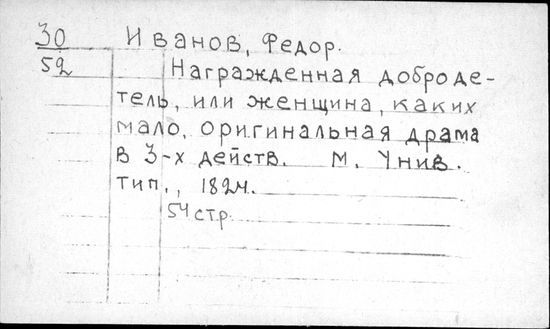 30 Иванов, Федор.
52 Награжденная доброде-
тель, или женщина, каких
мало, оригинальная драма
в 3-х действ. М. Унив.
тип., 1824.
54 стр.